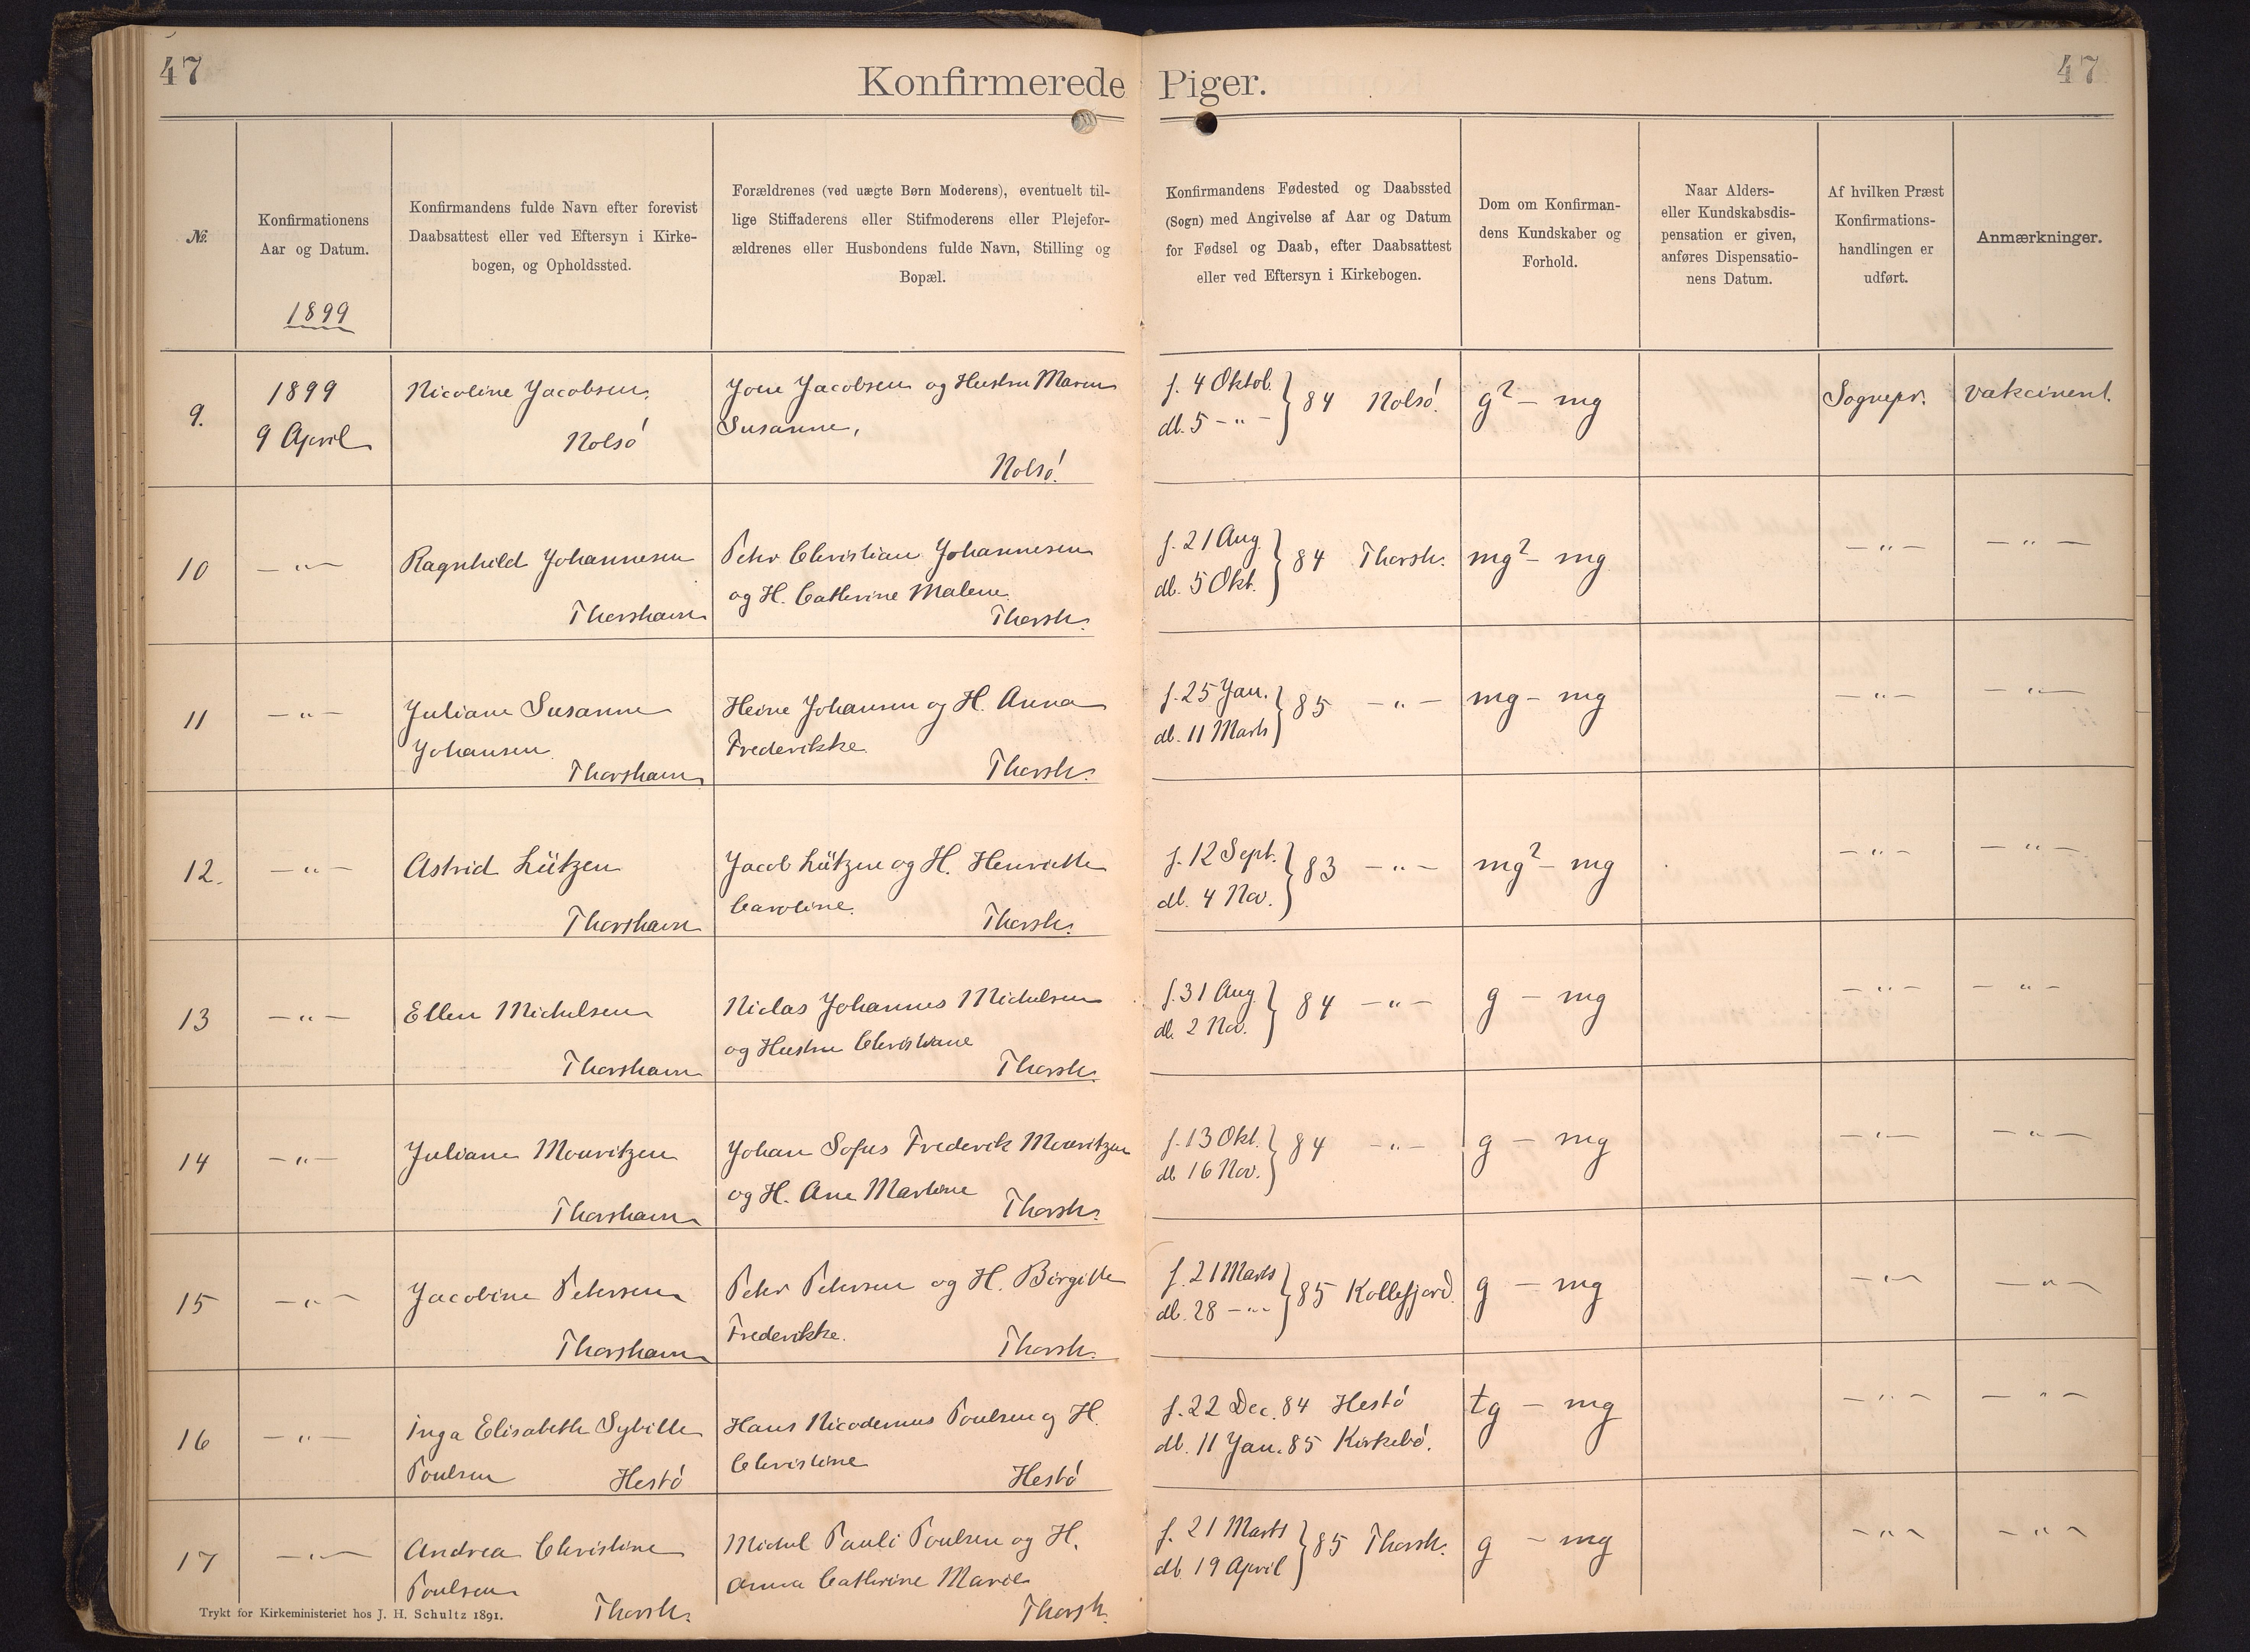 47
Konfirmerede Piger.
47
№.
Konfirmationens
Aar og Datum.
1899
Konfirmandens fulde Navn efter forevist
Daabsattest eller ved Eftersyn i Kirke-
bogen, og Opholdssted.
Forældrenes (ved uægte Børn Moderens), eventuelt til-
lige Stiffaderens eller Stifmoderens eller Plejefor-
ældrenes eller Husbondens fulde Navn, Stilling og
Bopæl.
Konfirmandens Fødested og Daabssted
(Sogn) med Angivelse af Aar og Datum
for Fødsel og Daab, efter Daabsattest
eller ved Eftersyn i Kirkebogen.
Dom om Konfirman-
dens Kundskaber og
Forhold.
Naar Alders-
eller Kundskabsdis-
pensation er given,
anføres Dispensatio-
nens Datum.
Af hvilken Præst
Konfirmations-
handlingen er
udført.
Anmærkninger.
9.
1899
9 April
Nicoline Jacobsen,
Nolsó
Joen Jacobsen og Hustru Maren
Susanne,
Nolsó.
f. 4 Oktob.
db. 5 - " - } 84 Nolsó.
g² - mg
Sognepr.
vakcineret.
10
- " -
Ragnhild Johannesen
Thorshavn
Peter Christian Johannesen
og H. Cathrine Malene.
Thorsh.
f. 21 Aug.
db. 5 Okt. } 84 Thorsh.
mg² - mg
- " -
- " -
11
- " -
Juliane Susanne
Johansen.
Thorshavn
Heine Johansen og H. Anna
Frederikke.
Thorsh.
f. 25 Jan.
db. 11 Marts } 85 - " -
mg - mg
- " -
- " -
12.
- " -
Astrid Lützen
Thorshavn
Jacob Lützen og H. Henriette
Caroline.
Thorsh.
f. 12 Sept.
db. 4 Nov. } 83 - " -
mg² - mg
- " -
- " -
13
- " -
Ellen Michelsen
Thorshavn
Niclas Johannes Michelsen
og Hustru Christiane
Thorsh.
f. 31 Aug.
db. 2 Nov. } 84 - " -
g - mg
- " -
- " -
14
- " -
Juliane Mouritzen
Thorshavn
Johan Sofus Frederik Mouritzen
og H. Ane Martine
Thorsh.
f. 13 Okt.
db. 16 Nov. } 84 - " -
g - mg
- " -
- " -
15
- " -
Jacobine Petersen
Thorshavn
Peter Petersen og H. Birgitte
Frederikke.
Thorsh.
f. 21 Marts
db. 28 - " - } 85 Kollefjord.
g - mg
- " -
- " -
16
- " -
Inga Elisabeth Sybille
Poulsen Hestó
Hans Nicodemus Poulsen og H.
Christine
Hestó
f. 22 Dec. 84 Hestó
db. 11 Jan. 85 Kirkebó.
tg - mg
- " -
- " -
17
- " -
Andrea Christine
Poulsen
Thorsh.
Michel Pauli Poulsen og H.
Anna Cathrine Marie
Thorsh.
f. 21 Marts
db 19 April } 85 Thorsh.
g - mg
- " -
- " -
Trykt for Kirkeministeriet hos J. H. Schultz 1891.